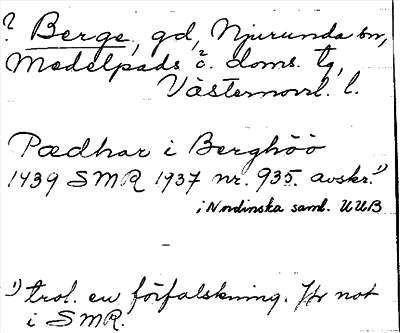 ? Berge, gd, Njurunda sn,
Medelpads ö. doms. tg,
Västernorrl. l.
Pædhar i Berghöö
1439 SMR 1937 nr. 935. avskr.¹)
i Nordinska saml. UUB
¹) trol. en förfalskning. Jfr not
i SMR.